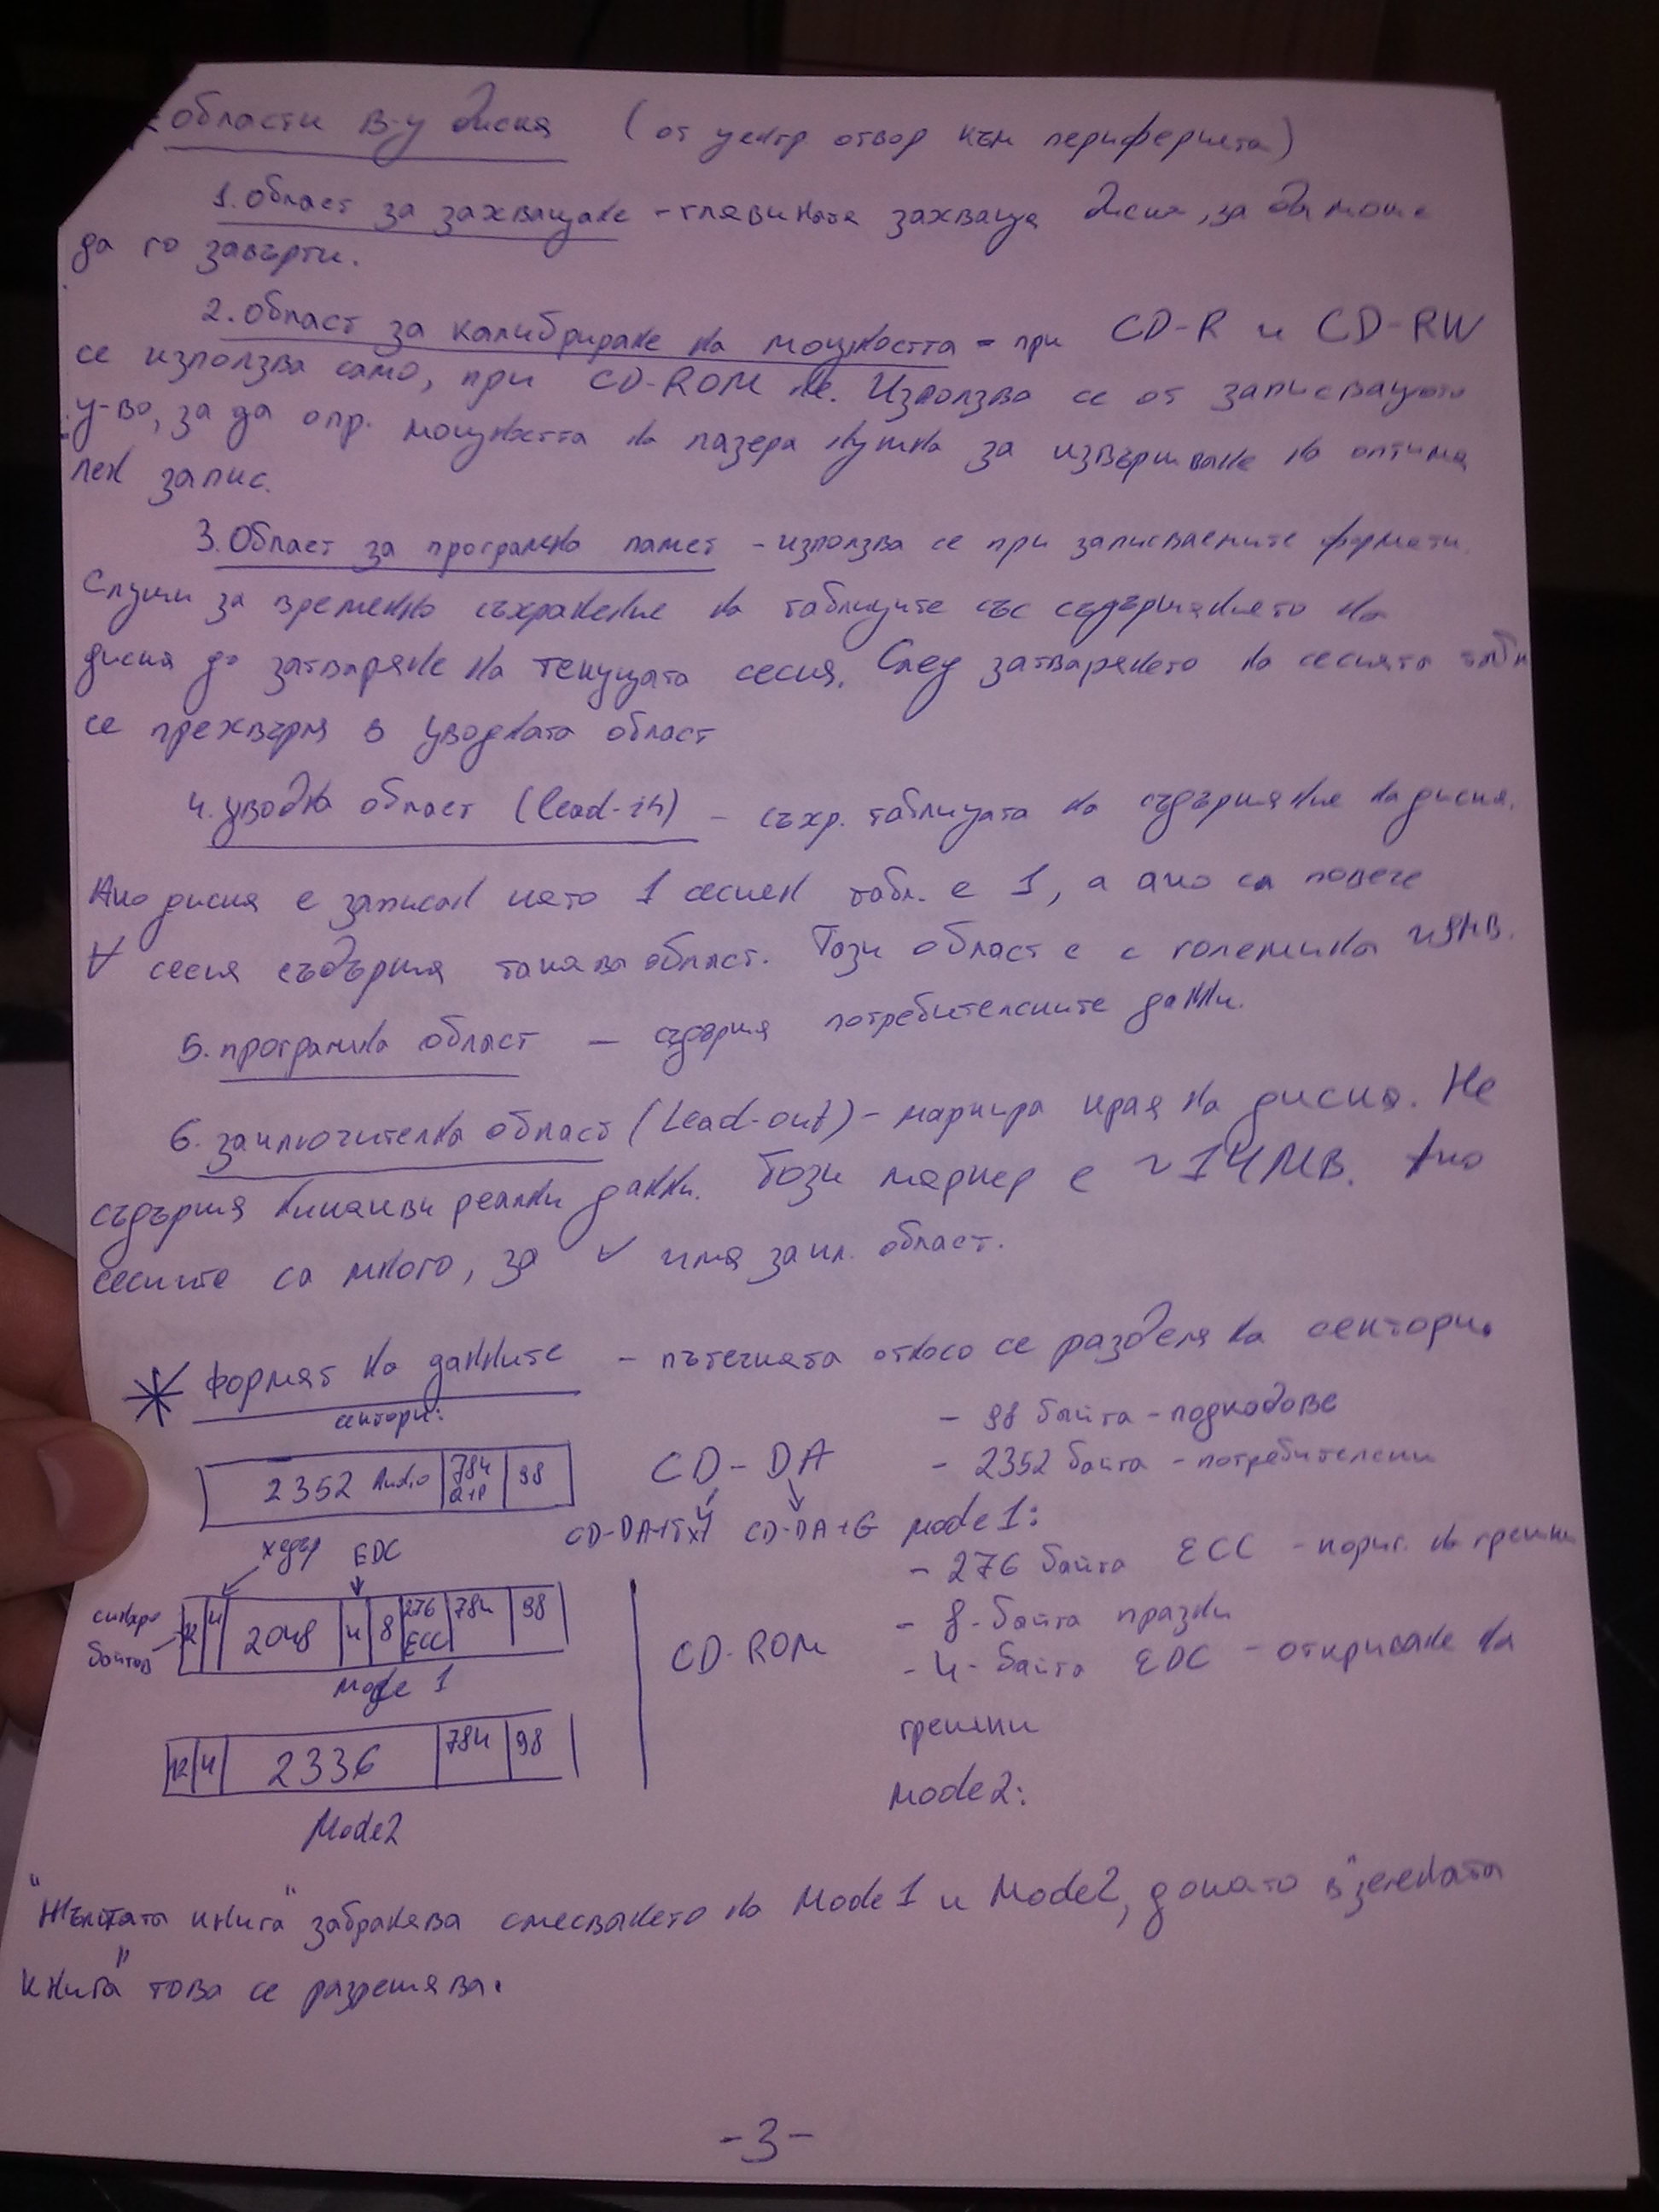 области в-у диска (от центр отвор към периферията)
1. Област за захващане - главината захваща диска, за да може
да го завърти.
2. Област за калибриране на мощността - при CD-R и CD-RW
се използва само, при CD-ROM не. Използва се от записващото
у-во, за да опр. мощността на лазера нужна за извършване на оптима
лен запис.
3. Област за програмна памет - използва се при записваемите формати.
Служи за временно съхранение на таблиците със съдържанието на
диска до затваряне на текущата сесия. След затварянето на сесията табл
се прехвърля в уводната област
4. уводна област (lead-in) - съхр. таблицата на съдържание на диска.
Ако диска е записан като 1 сесиен табл. е 1, а ако са повече
∀ сесия съдържа такава област. Този област е с големина
5. програмна област - съдържа потребителските данни.
6. заключителна област (Lead-out) - маркира края на диска. Не
съдържа никакви реални данни. Този маркер е ~14MB. Ако
сесиите са много, за ∀ има закл. област.
* формат на данните - пътечката отново се разделя на сектори.
сектори:
- 98 байта - подкодове
2352 Audio | 784 Q+P | 98
CD-DA
- 2352 байта - потребителски
CD-DA+Txt CD-DA+G
Mode 1:
хедър EDC
- 276 байта ECC - кориг. на грешки
синхро байтов
12 | 4 | 2048 | 4 | 8 | 276 ECC | 784 | 98
- 8-байта празни
CD-ROM
- 4-байта EDC - откриване на
Mode 1
грешки
12 | 4 | 2336 | 784 | 98
Mode2:
Mode2
"Жълтата книга" забранява смесването на Mode 1 и Mode2, докато в "зелената
книга" това се разрешава.
-3-